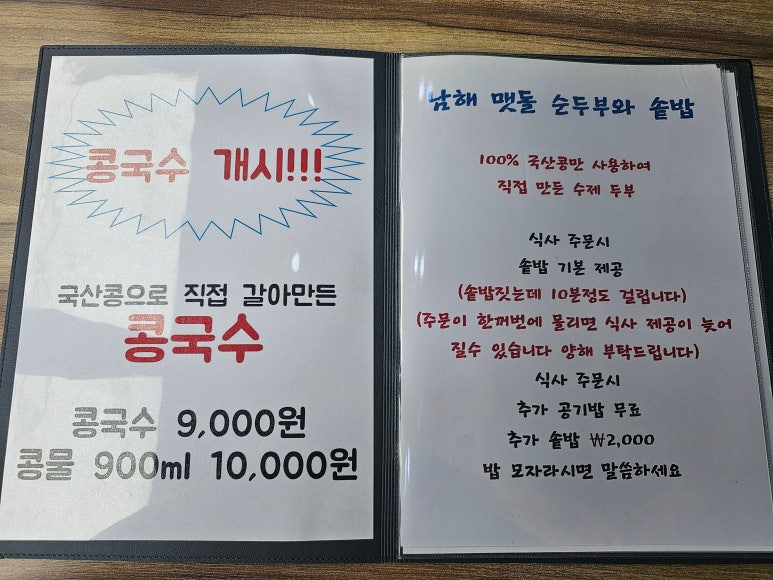 콩국수 개시!!!
국산콩으로 직접 갈아만든
콩국수
콩국수 9,000원
콩물 900ml 10,000원
남해 맷돌 순두부와 솥밥
100% 국산콩만 사용하여
직접 만든 수제 두부
식사 주문시
솥밥 기본 제공
(솥밥짓는데 10분정도 걸립니다)
(주문이 한꺼번에 몰리면 식사 제공이 늦어
질수 있습니다 양해 부탁드립니다)
식사 주문시
추가 공기밥 무료
추가 솥밥 ₩2,000
밥 모자라시면 말씀하세요